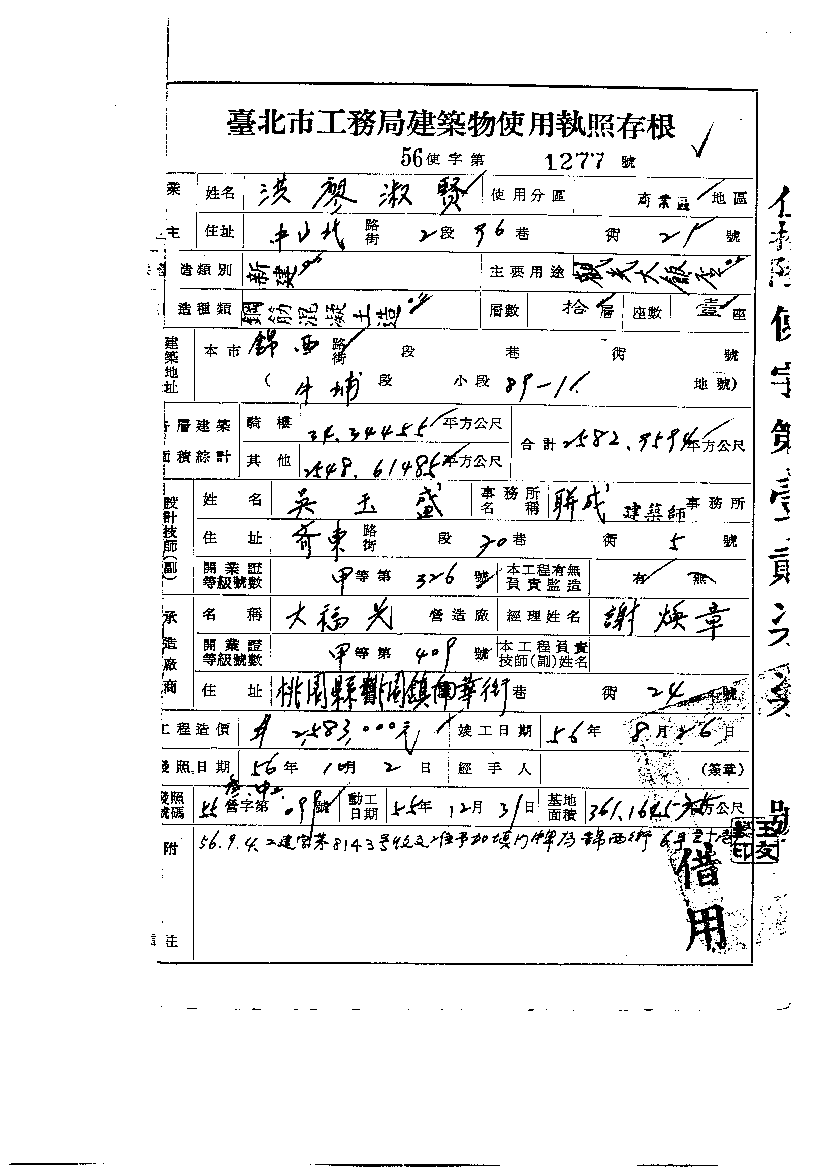 臺北市工務局建築物使用執照存根
56使字第 1277 號
業 姓名 洪廖淑賢 使用分區 商業區 地區
主 住址 中山北 路街 2段 96巷 街 21 號
造類別 新建 主要用途 觀光大飯店
造種類 鋼筋混凝土造 層數 拾層 座數 壹座
建築地址 本市 錦西 路街 段 巷 街 號
( 牛埔段 小段 89-11 地號)
層建築 騎樓 34.34455 平方公尺 合計 2582.9594 平方公尺
面積綜計 其他 2548.61485 平方公尺
設計技師(副) 姓名 吳玉盛 事務所名稱 聯成 建築師 事務所
住址 齊東 路街 段 20巷 街 5 號
開業證等級號數 甲等第 326 號 本工程有無負責監造 有 無
承造廠商 名稱 大福光 營造廠 經理姓名 謝煥章
開業證等級號數 甲等第 409 號 本工程負責技師(副)姓名
住址 桃園縣 園鎮南華街 巷 街 24 號
工程造價 $ 2,583,000元 竣工日期 56年 8月26日
發照日期 56年 10月 2日 經手人 (簽章)
號碼 55 營字第 099 號 動工日期 55年 12月 31日 基地面積 361.1645 平方公尺
附 56.9.4. 建字第8143号 錦西街
註
借用
使字第壹貳 號